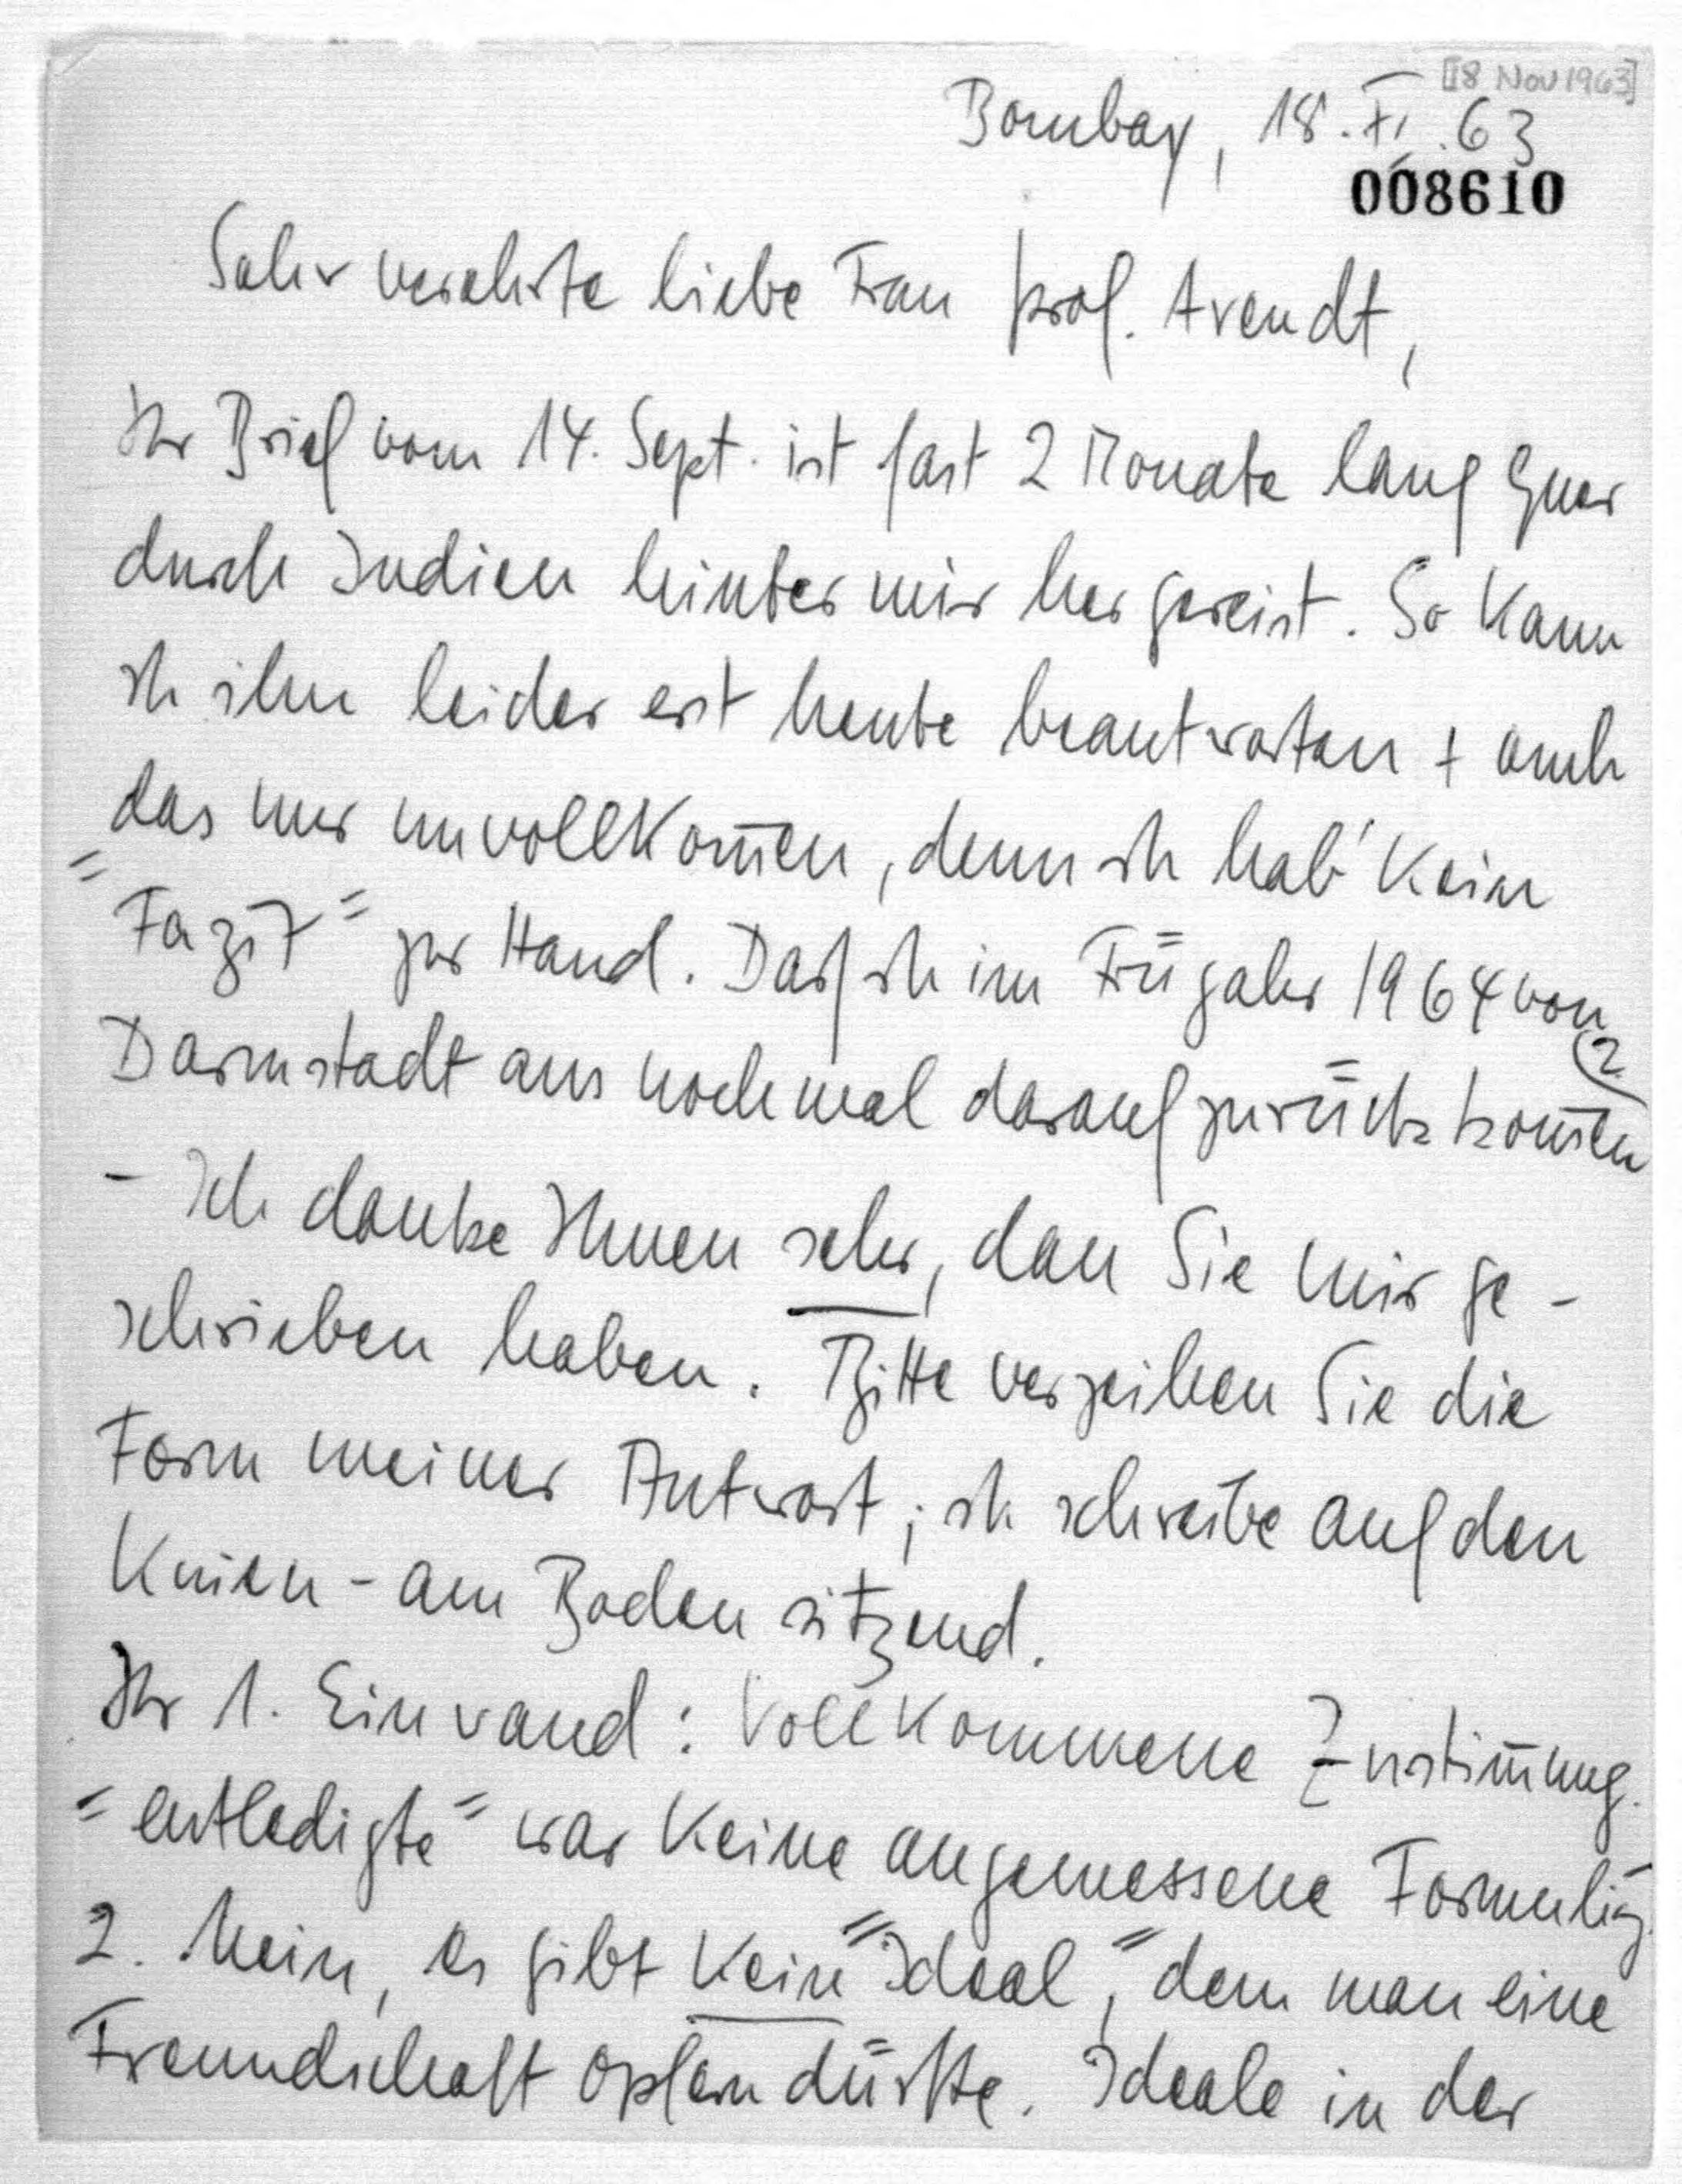 [18 Nov 1963]
Bombay, 18. XI. 63
008610
Sehr verehrte liebe Frau Prof. Arendt,
Ihr Brief vom 14. Sept. ist fast 2 Monate lang quer
durch Indien hinter mir her gereist. So kann
ich ihn leider erst heute beantworten + auch
das nur unvollkom̅en, denn ich hab' kein
"Fazit" zur Hand. Darf ich im Früjahr 1964 von
Darmstadt aus nochmal darauf zurückkom̅en
(?)
- Ich danke Ihnen sehr, dass Sie mir ge-
schrieben haben. Bitte verzeihen Sie die
Form meiner Antwort; ich schreibe auf den
Knien - am Boden sitzend.
Ihr 1. Einwand: Vollkommene Zustim̅ung.
"entledigte" war keine angemessene Formulig.
2. Nein, es gibt kein "Ideal", dem man eine
Freundschaft opfern dürfte. Ideale in der